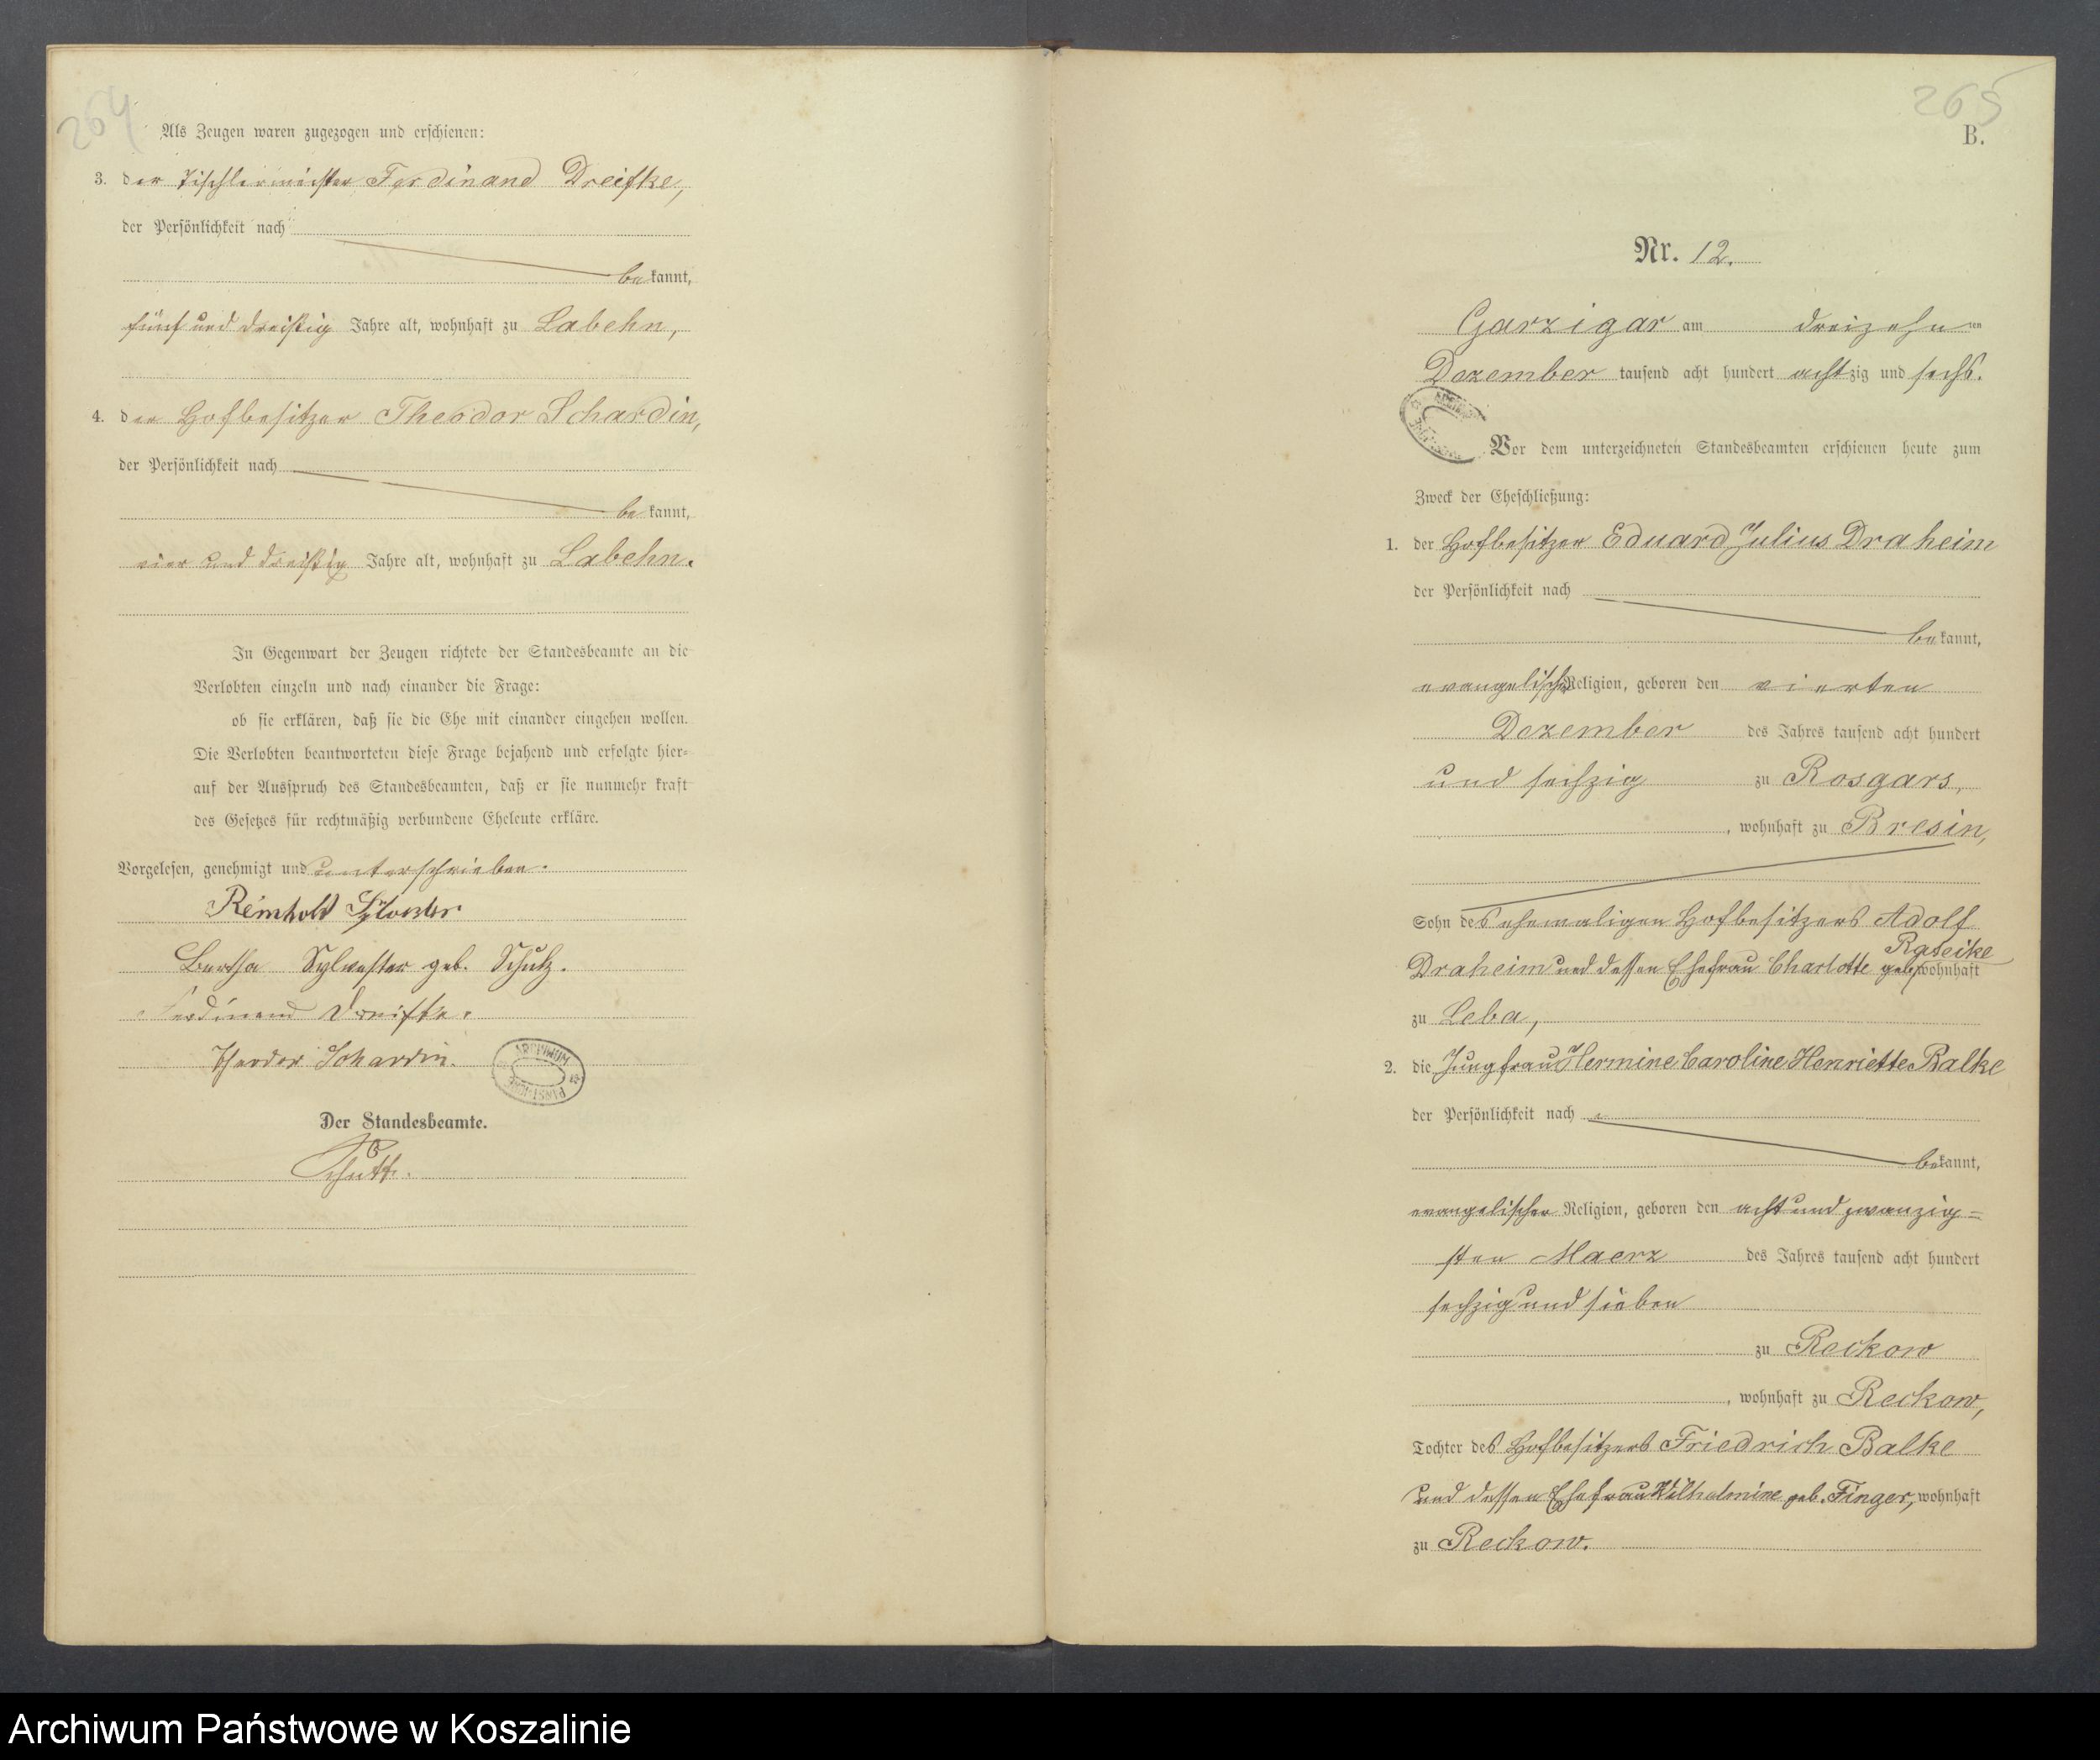 264
Als Zeugen waren zugezogen und erschienen:
3. der Tischlermeister Ferdinand Dreifke,
der Persönlichkeit nach
be kannt,
fünf und dreißig Jahre alt, wohnhaft zu Labehn,
4. der Hofbesitzer Theodor Schardin,
der Persönlichkeit nach
be kannt,
vier und dreißig Jahre alt, wohnhaft zu Labehn.
In Gegenwart der Zeugen richtete der Standesbeamte an die
Verlobten einzeln und nach einander die Frage:
ob sie erklären, daß sie die Ehe mit einander eingehen wollen.
Die Verlobten beantworteten diese Frage bejahend und erfolgte hier-
auf der Ausspruch des Standesbeamten, daß er sie nunmehr kraft
des Gesetzes für rechtmäßig verbundene Eheleute erkläre.
Vorgelesen, genehmigt und unterschrieben.
Reinhold Sylvester
Bertha Sylvester geb. Schulz.
Ferdinand Dreifke.
Theodor Schardin.
ARCHIWUM
Der Standesbeamte.
265
B.
Nr. 12.
Garzigar am dreizehn ten
Dezember tausend acht hundert achtzig und sechs.
Vor dem unterzeichneten Standesbeamten erschienen heute zum
Zweck der Eheschließung:
1. der Hofbesitzer Eduard Julius Draheim
der Persönlichkeit nach
be kannt,
evangelischer Religion, geboren den vierten
Dezember des Jahres tausend acht hundert
und sechzig zu Rosgars,
, wohnhaft zu Bresin,
Sohn des ehemaligen Hofbesitzers Adolf
Draheim und dessen Ehefrau Charlotte geb. Radeike wohnhaft
zu Leba,
2. die Jungfrau Hermine Caroline Henriette Balke
der Persönlichkeit nach
bekannt,
evangelischer Religion, geboren den acht und zwanzig=
sten Maerz des Jahres tausend acht hundert
sechzig und sieben
zu Reckow
, wohnhaft zu Reckow,
Tochter des Hofbesitzers Friedrich Balke
und dessen Ehefrau Wilhelmine geb. Finger, wohnhaft
zu Reckow.
Archiwum Państwowe w Koszalinie